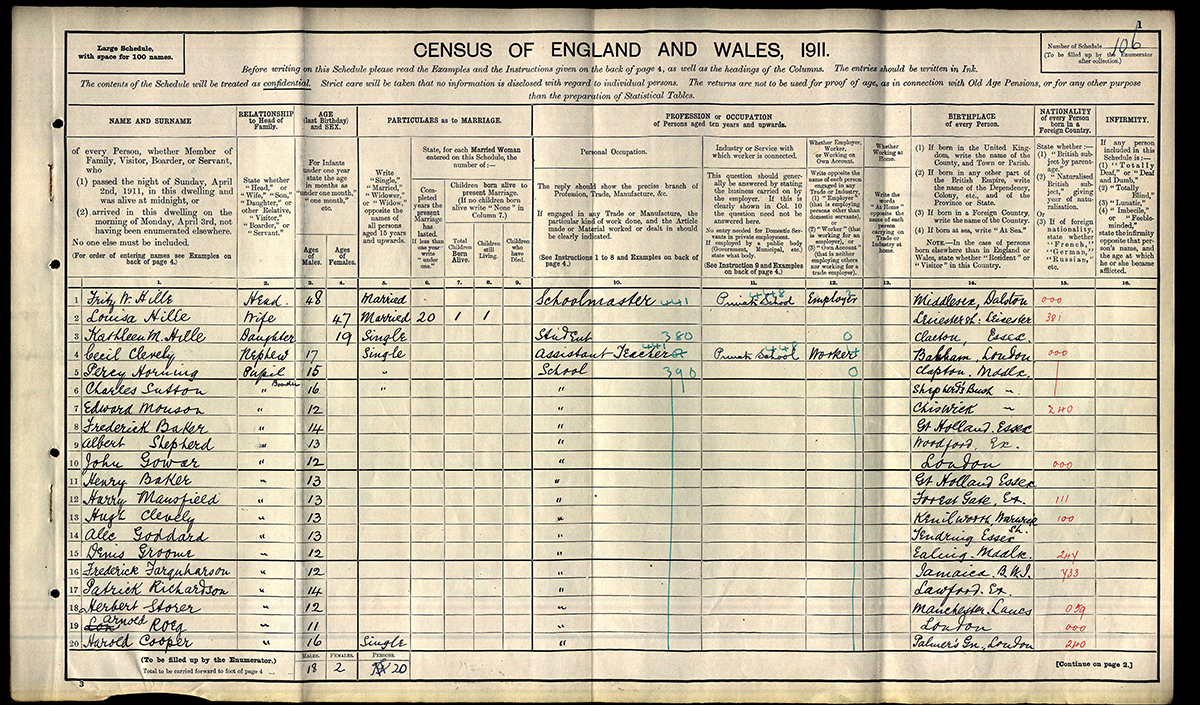 1
Large Schedule,
with space for 100 names.
CENSUS OF ENGLAND AND WALES, 1911.
Number of Schedule 106
(To be filled up by the Enumerator
after collection.)
Before writing on this Schedule please read the Examples and the Instructions given on the back of page 4, as well as the headings of the Columns. The entries should be written in Ink.
The contents of the Schedule will be treated as confidential. Strict care will be taken that no information is disclosed with regard to individual persons. The returns are not to be used for proof of age, as in connection with Old Age Pensions, or for any other purpose
than the preparation of Statistical Tables.
NAME AND SURNAME
of every Person, whether Member of
Family, Visitor, Boarder, or Servant,
who
(1) passed the night of Sunday, April
2nd, 1911, in this dwelling and
was alive at midnight, or
(2) arrived in this dwelling on the
morning of Monday, April 3rd, not
having been enumerated elsewhere.
No one else must be included.
(For order of entering names see Examples on
back of page 4.)
RELATIONSHIP
to Head of
Family.
State whether
"Head," or
"Wife," "Son,"
"Daughter," or
other Relative,
"Visitor,"
"Boarder," or
"Servant."
AGE
(last Birthday)
and SEX.
For Infants
under one year
state the age
in months as
"under one month,"
"one month,"
etc.
Ages
of
Males.
Ages
of
Females.
PARTICULARS as to MARRIAGE.
Write
"Single,"
"Married,"
"Widower,"
or "Widow,"
opposite the
names of
all persons
aged 15 years
and upwards.
State, for each Married Woman
entered on this Schedule, the
number of :—
Completed
years the
present
Marriage
has
lasted.
If less than
one year
write
"under
one."
Children born alive to
present Marriage.
(If no children born
alive write "None" in
Column 7.)
Total
Children
Born
Alive.
Children
still
Living.
Children
who
have
Died.
PROFESSION or OCCUPATION
of Persons aged ten years and upwards.
Personal Occupation.
The reply should show the precise branch of
Profession, Trade, Manufacture, &c.
If engaged in any Trade or Manufacture, the
particular kind of work done, and the Article
made or Material worked or dealt in should
be clearly indicated.
(See Instructions 1 to 8 and Examples on back of
page 4.)
Industry or Service with
which worker is connected.
This question should generally
be answered by stating the
business carried on by
the employer. If this is
clearly shown in Col. 10
the question need not be
answered here.
No entry needed for Domestic Servants
in private employment.
If employed by a public body
(Government, Municipal, etc.)
state what body.
(See Instruction 9 and Examples
on back of page 4.)
Whether Employer,
Worker,
or Working on
Own Account.
Write opposite the name
of each person engaged
in any Trade or
Industry,
(1) "Employer"
(that is employing
persons other than
domestic servants),
or
(2) "Worker" (that
is working for an
employer), or
(3) "Own Account"
(that is neither
employing others
nor working for a
trade employer).
Whether
Working at
Home.
Write the
words
"At Home"
opposite the
name of
each person
carrying on
Trade or
Industry at
home.
BIRTHPLACE
of every Person.
(1) If born in the United Kingdom,
write the name of the
County, and Town or Parish.
(2) If born in any other part of
the British Empire, write the
name of the Dependency,
Colony, etc., and of the
Province or State.
(3) If born in a Foreign Country,
write the name of the Country.
(4) If born at sea, write "At Sea."
NOTE.—In the case of persons
born elsewhere than in England or
Wales, state whether "Resident" or
"Visitor" in this Country.
NATIONALITY
of every Person
born in a
Foreign Country.
State whether :—
(1) "British subject
by parentage."
(2) "Naturalised
British subject,"
giving
year of naturalisation.
Or
(3) If of foreign
nationality,
state whether
"French,"
"German,"
"Russian,"
etc.
INFIRMITY.
If any
person
included in this
Schedule is :—
(1) "Totally
Deaf," or "Deaf
and Dumb,"
(2) "Totally
Blind,"
(3) "Lunatic,"
(4) "Imbecile,"
or "Feeble-minded,"
state the infirmity
opposite that
person's name,
and the age at
which he or she
became
afflicted.
1. 2. 3. 4. 5. 6. 7. 8. 9. 10. 11. 12. 13. 14. 15. 16.
1 Fritz W. Hille Head. 48 Married Schoolmaster 441 Private School Employer Middlesex, Dalston 000
2 Louisa Hille Wife 47 Married 20 1 1 Leicester 381
3 Kathleen M. Hille Daughter 19 Single Student 380 0 Clacton, Essex
4 Cecil Clevely Nephew 17 Single Assistant Teacher Private School Worker Balham, London 000
5 Percy Horning Pupil 15 " School 390 0 Clapton. Middx.
6 Charles Sutton " Boarder 16 " " Shepherd's Bush "
7 Edward Monson " 12 " Chiswick " 240
8 Frederick Baker " 14 " Gt Holland, Essex
9 Albert Shepherd " 13 " Woodford, Ex.
10 John Gowar " 12 " London 000
11 Henry Baker " 13 " Gt Holland Essex
12 Harry Mansfield " 13 " Forest Gate, Ex. 111
13 Hugh Clevely " 13 " Kenilworth, Warwick 100
14 Alec Goddard " 13 " Tendring Essex
15 Denis Groome " 12 " Ealing. Middx. 244
16 Frederick Farquharson " 12 " Jamaica. B.W.I. 733
17 Patrick Richardson " 14 " Lawford. Ex.
18 Herbert Storer " 12 " Manchester, Lancs 059
19 Arnold Roeg " 11 " London 000
20 Harold Cooper " 16 Single " Palmer's Gn., London 240
(To be filled up by the Enumerator.)
Total to be carried forward to foot of page 4
MALES. FEMALES. PERSONS.
18 2 20
[Continue on page 2.]
3